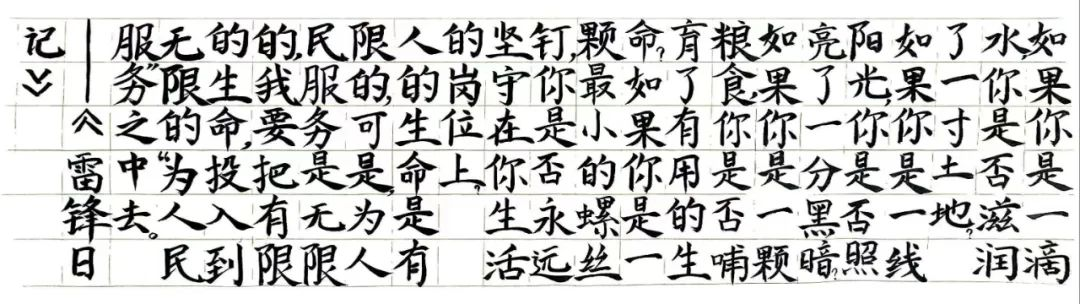 如果你是一滴
水,你是否滋润
了一寸土地?
如果你是一线
阳光,你是否照
亮了一分黑暗?
如果你是一颗
粮食,你是否哺
育了有用的生
命?如果你是一
颗最小的螺丝
钉,你是否永远
坚守在你生活
的岗位上,
人的生命是有
限的,可是,为人
民服务是无限
的,我要把有限
的生命,投入到
无限的“为人民
服务”之中去。
——《雷锋日
记》